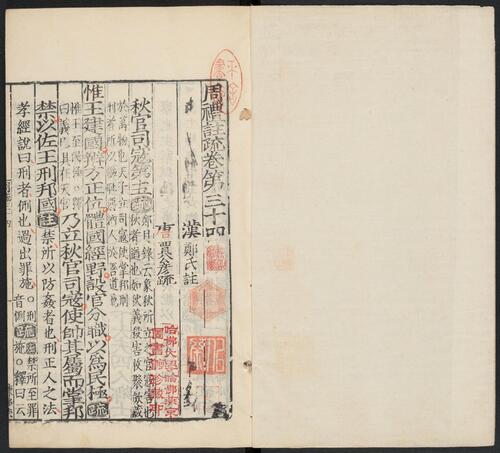 周禮註疏卷第三十四
漢 鄭氏註
唐 賈彥疏
秋官司寇第五疏鄭目錄云象秋所立之官寇害也
秋者遒也如秋義殺害收聚斂藏
於萬物也天子立司寇使掌邦刑
刑者所以驅恥惡納人於善道也
惟王建國辨方正位體國經野設官分職以爲民極疏
惟王至民極○釋
曰義已具在天官
乃立秋官司寇使帥其屬而掌邦
禁以佐王刑邦國註禁所以防姦者也刑正人之法
孝經說曰刑者侀也過出罪施○刑
音侀疏施○釋曰云
禁所至罪
哈佛大學哈佛燕京
圖書館珍藏印